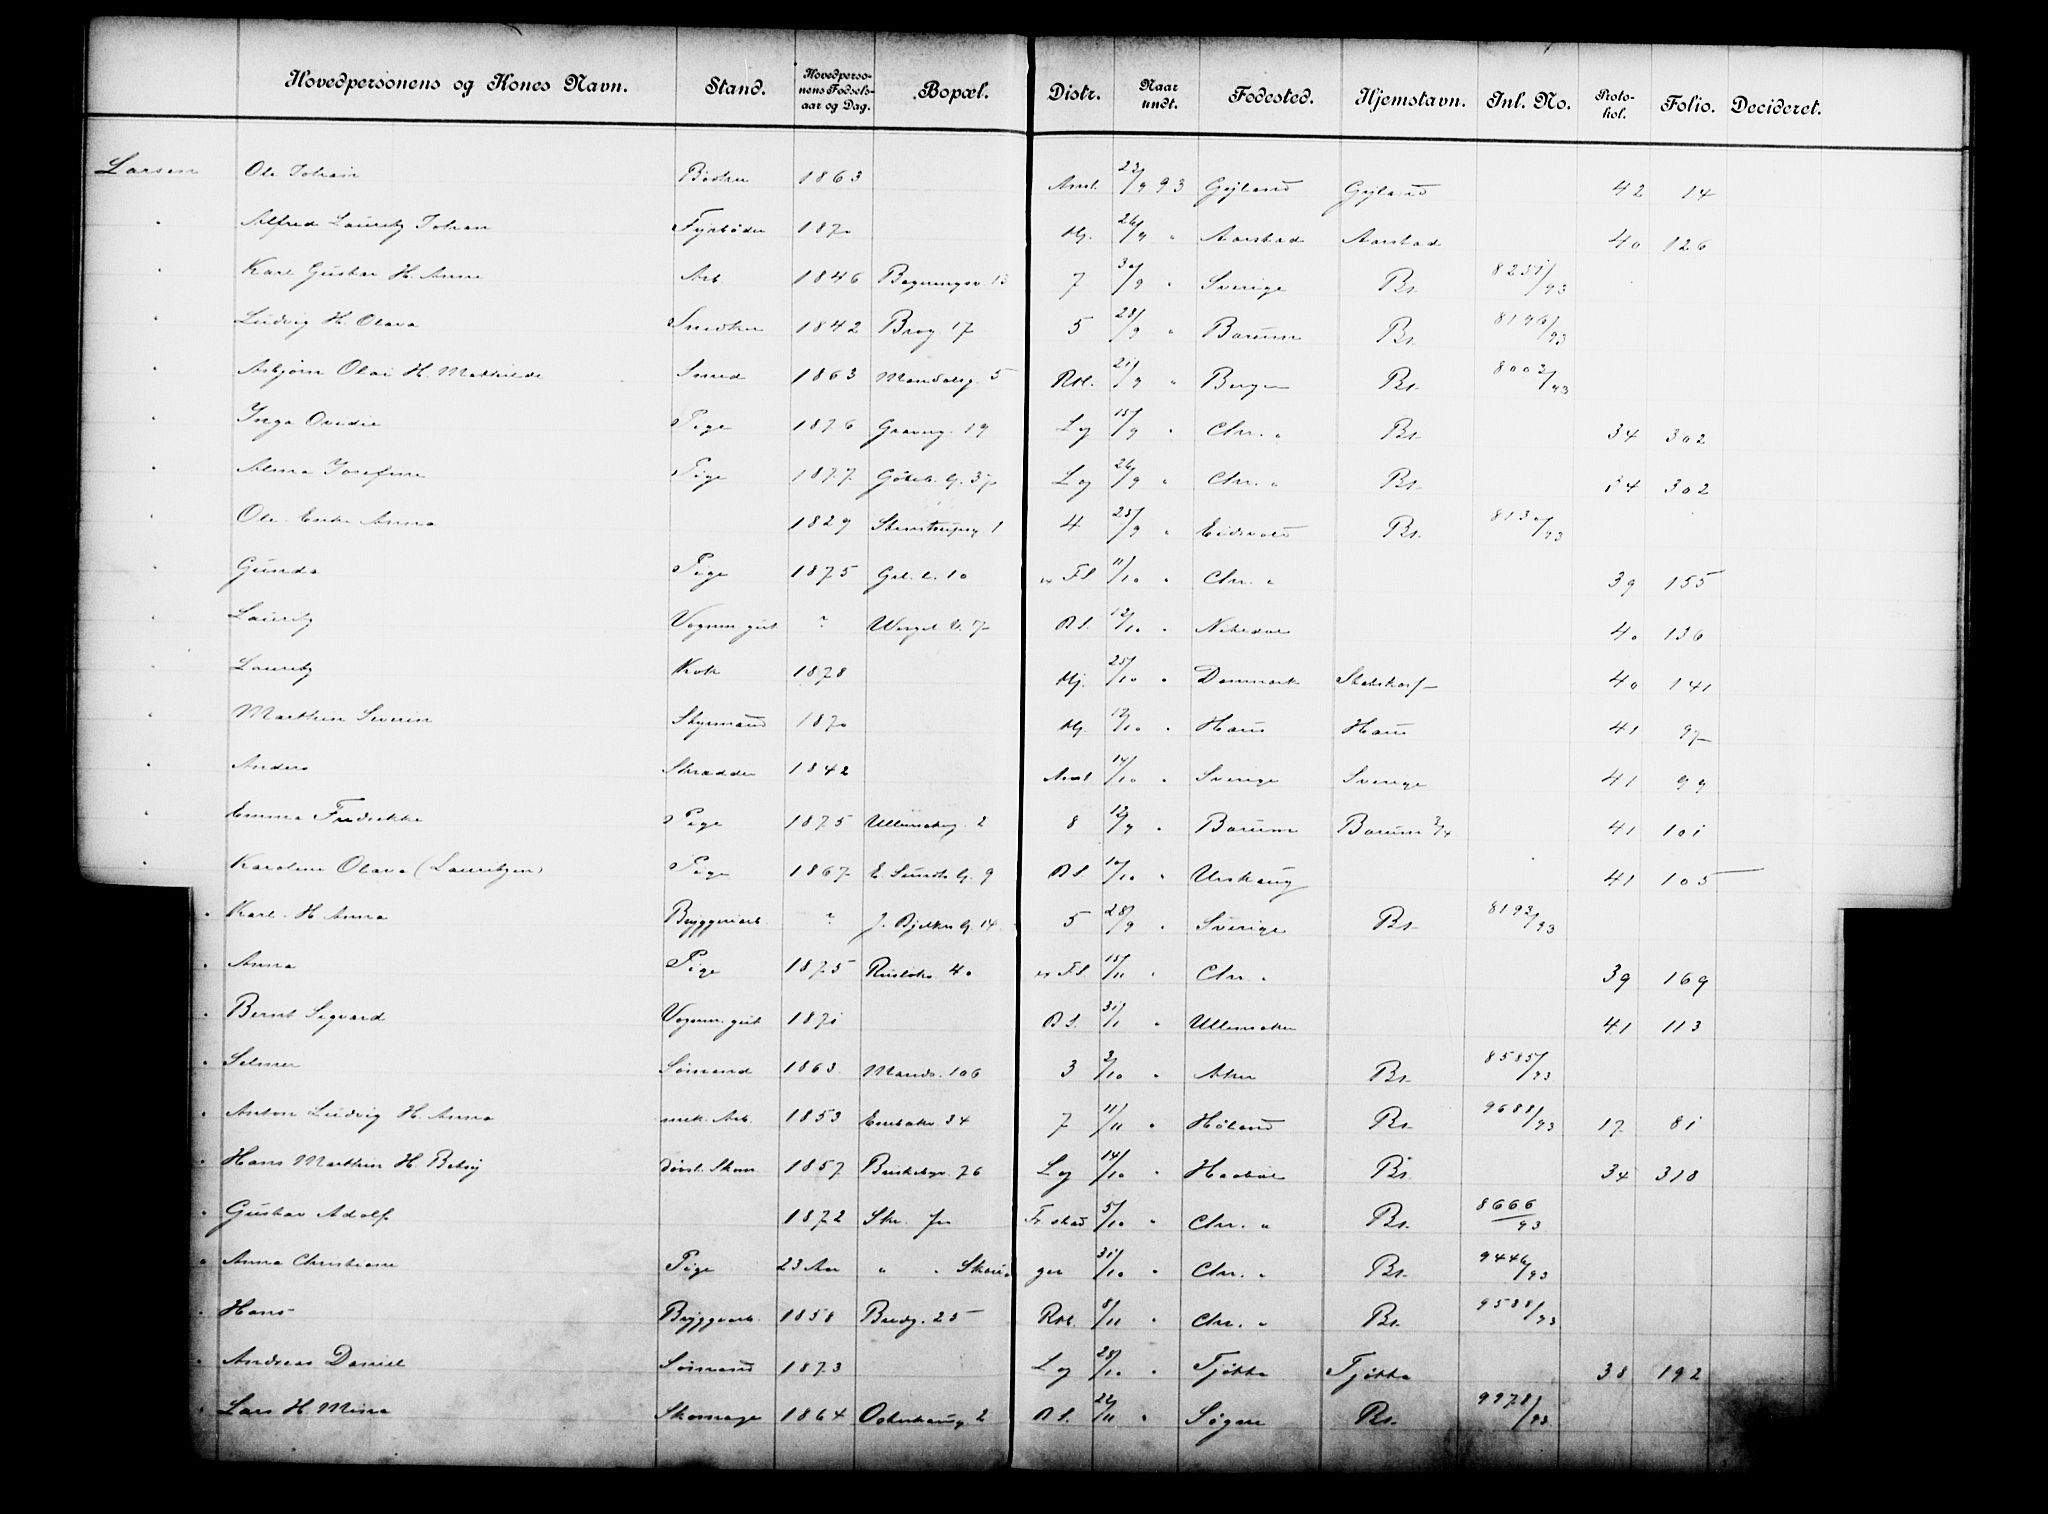 Hovedpersonens og Kones Navn. Stand. Hovedpersonens Fødselsaar og Dag. Bopæl. Distr. Naar undt. Fødested. Hjemstavn. Inl. No. Protokol. Folio. Decideret.
Larsen Ole Johan 1863 22/9 93 Gyland Gyland 42 14
" Alfred Lauritz Johan Fyrbøder 1870 Hj. 26/9 " Aarstad Aarstad 40 126
" Karl Gustav H. Anna Arb. 1846 13 7 30/9 " Sverige Bs. 8251/93
" Ludvig H. Olava Snedker 1842 Brog. 17 5 28/9 " Bærum Bs. 8196/93
" Asbjørn Olai H. Mathilde Smed 1863 Mandalsg. 5 Rol. 21/9 " Bergen Bs. 8002/93
" Inga Ovidie Pige 1876 19 Lg 15/9 " Chr. " Bs. 34 302
" Alma Josefine Pige 1877. Göteb. G. 37 Lg 26/9 " Chr. " Bs. 34 302
" Ole Enke Anna 1829 Stenstrupsg. 1 4 25/9 " Eidsvold Bs. 8130/93
" Gunda Pige 1875 Grl. l. 10 Fl. 11/10 " Chr. " 39 155
" Lauritz Vognm. gut ? Wergel. V. 7 B l. 12/10 " Nittedal 40 136
" Lauritz Kok 1878 Hj. 25/10 " Danmark 40 141
" Marthin Severin Styrmand 1870 Hj. 12/10 " Haus Haus 41 97
" Anders Skrædder 1842 14/10 " Sverige Sverige 41 99
" Emma Fredrikke Pige 1875 Ullensakerg. 2 8 12/9 " Bærum Bærum 41 101
" Karoline Olava (Lauritzen) Pige 1867. E. Sundts G. 9 B l. 10/10 " Urskaug 41 105
" Karl H. Anna Bryggeriarb. ? J. Bjelkes G. 14 5 28/9 " Sverige Bs. 8193/93
" Anna Pige 1875 Ruseløkv. 40 Fl. 15/11 " Chr. " 39 169
" Bernt Sigvard Vognm. gut 1871 B l. 31/1 " Ullensaker 41 113
" Selmer Sømand 1863. 106 3 2/10 " Aker Bs. 8585/93
" Anton Ludvig H. Anna mek. Arb. 1853 Enebakv. 34 7 11/11 " Høland Bs. 9688/93 17 81
" Hans Marthin H. Betsy døvst. Skom. 1857. Briskebyv. 76 Lg 14/10 " Haabøl Bs. 34 318
" Gustav Adolf 1872 Skr. fra Fr.stad 5/10 " Chr. " Bs. 8666/93
" Anna Christiane Pige 23 Aar " " ger 31/10 " Chr. " Bs. 9446/93
" Hans Bryggeriarb. 1858 Bredg. 25 Rol. 8/11 " Chr. " Bs. 9588/93
" Andreas Daniel Sømand 1873 Lg 28/10 " Tjøtta Tjøtta 38 192
" Lars H. Mina Skomager 1864 Osterhausg. 2 B l. 22/11 " Søgne Bs. 9978/93